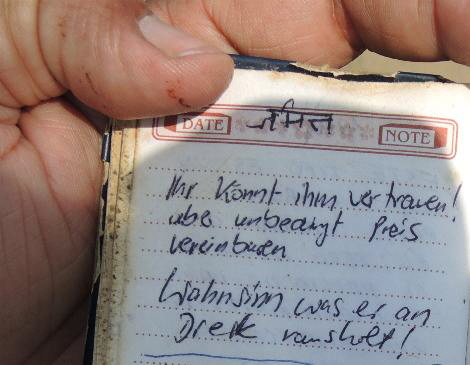 DATE जमिल NOTE
Ihr könnt ihm vertrauen!
aber unbedingt Preis
vereinbaren
Wahnsinn was er an
Dreck rausholt!